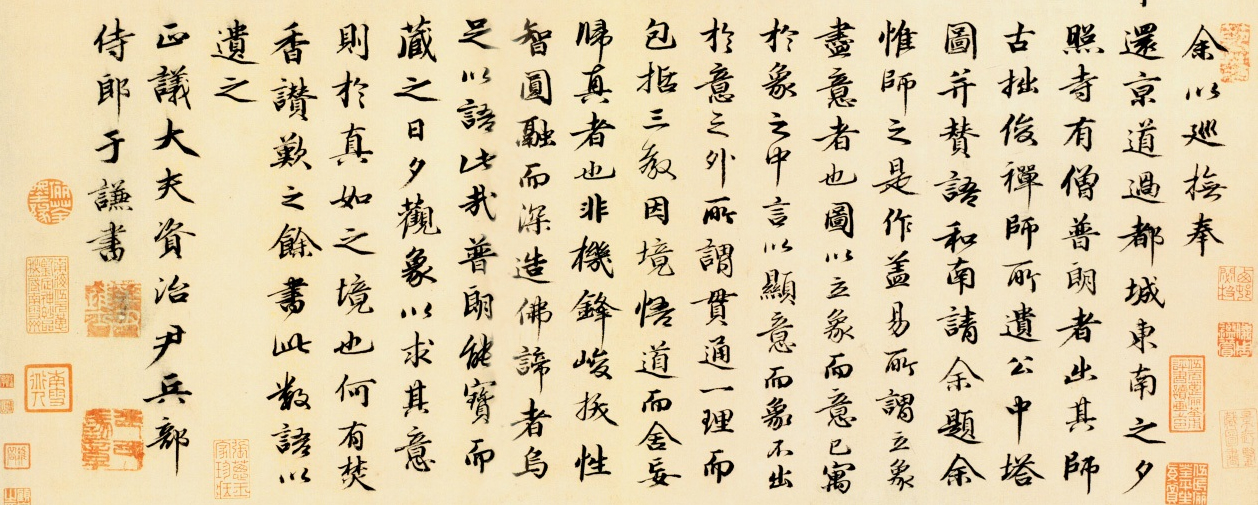 余以廵撫奉
還京道過都城東南之夕
照寺有僧普朗者出其師
古拙俊禪師所遺公中塔
圖并賛語和南請余題余
惟師之是作蓋易所謂立象
盡意者也圖以立象而意已寓
於象之中言以顯意而象不出
於意之外所謂貫通一理而
包括三教因境悟道而舍妄
歸真者也非機鋒峻拔性
智圓融而深造佛諦者烏
足以語此哉普朗能寶而
藏之日夕觀象以求其意
則於真如之境也何有焚
香讃歎之餘書此數語以
遺之
正議大夫資治尹兵部
侍郎于謙書
張蔥玉家珍藏